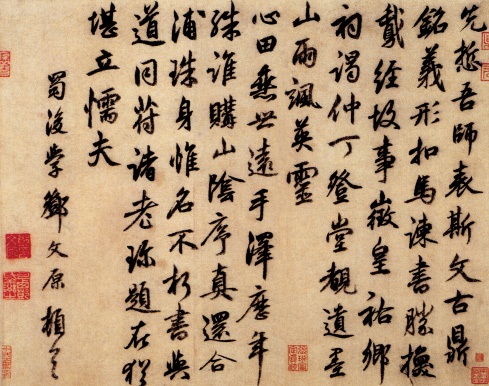 先哲吾師表斯文古鼎
銘義形扣馬諫書勝換
鵝經故事徽皇祐鄉
祠謁仲丁登堂覩遺墨
山雨颯英靈
心田無世遠手澤歷年
殊誰購山陰序真還合
浦珠身惟名不朽書與
道同符諸老珍題在猶
堪立懦夫
蜀後學鄧文原頓首